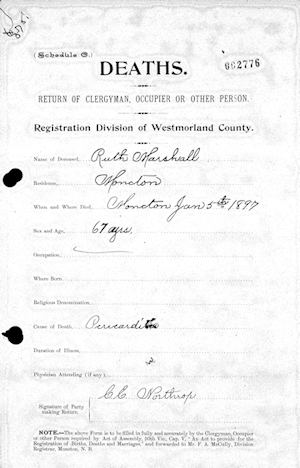 (Schedule C.)
662776
DEATHS.
RETURN OF CLERGYMAN, OCCUPIER OR OTHER PERSON.
Registration Division of Westmorland County.
Name of Deceased, Ruth Marshall
Residence, Moncton
When and Where Died, Moncton Jan 5th 1897
Sex and Age, 67 yrs.
Occupation,
Where Born
Religious Denomination,
Cause of Death, Pericarditis
Duration of Illness,
Physician Attending (if any)
C. E. Northrop
Signature of Party
making Return.
NOTE.—The above Form is to be filled in fully and accurately by the Clergyman, Occupier
or other Person required by Act of Assembly, 50th Vic, Cap. V, "An Act to provide for the
Registration of Births, Deaths and Marriages," and forwarded to Mr. F. A. McCully, Division
Registrar, Moncton, N. B.